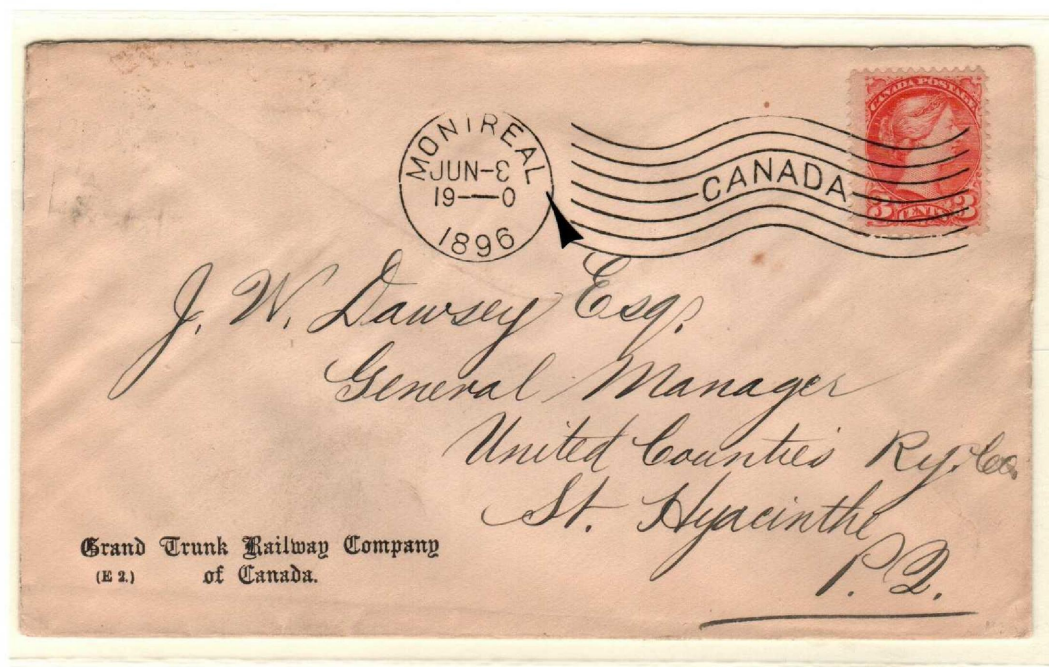 MONTREAL
JUN-3
19—0
1896
CANADA
CANADA POSTAGE
3 CENTS 3
J. W. Dawsey Esq.
General Manager
United Counties Ry. Co.
St. Hyacinthe
P. Q.
Grand Trunk Railway Company
(E 2.) of Canada.